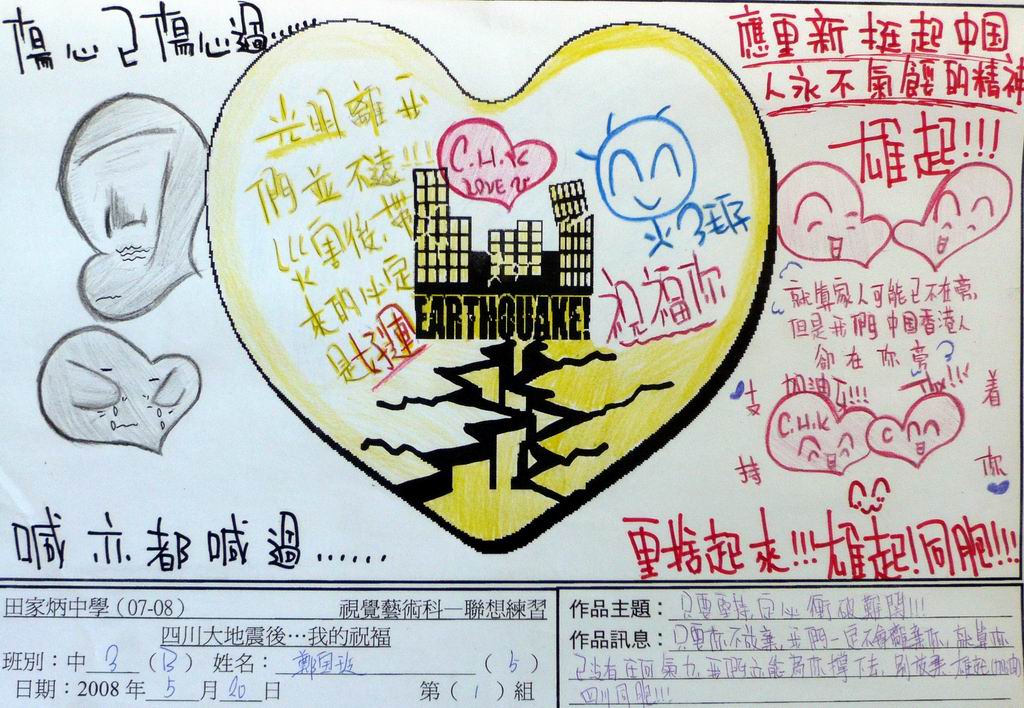 傷心已傷心過……
應重新挺起中国
人永不氣餒的精神
雄起!!!
光明離我
們並不遠!!!
災害後,帶
來的必定
是好運
C.H.K
LOVE U
EARTHQUAKE!
祝福你
就算家人可能已不在旁,
但是我們中国香港人
卻在你旁
加油!!!
支
持
着
你
C.H.K
C
喊亦都喊過……
重拾起來!!!雄起!同胞!!!
田家炳中學 (07-08) 視覺藝術科—聯想練習
四川大地震後…我的祝福
班別：中 3 (B) 姓名： (5)
日期：2008 年 5 月 20 日 第 (1) 組
作品主題：只要堅持,定必衝破難關!!!
作品訊息：只要你不放棄,我們一定不會離棄你,就算你
已沒有任何氣力,我們亦能為你撐下去,別放棄,雄起
四川同胞!!!